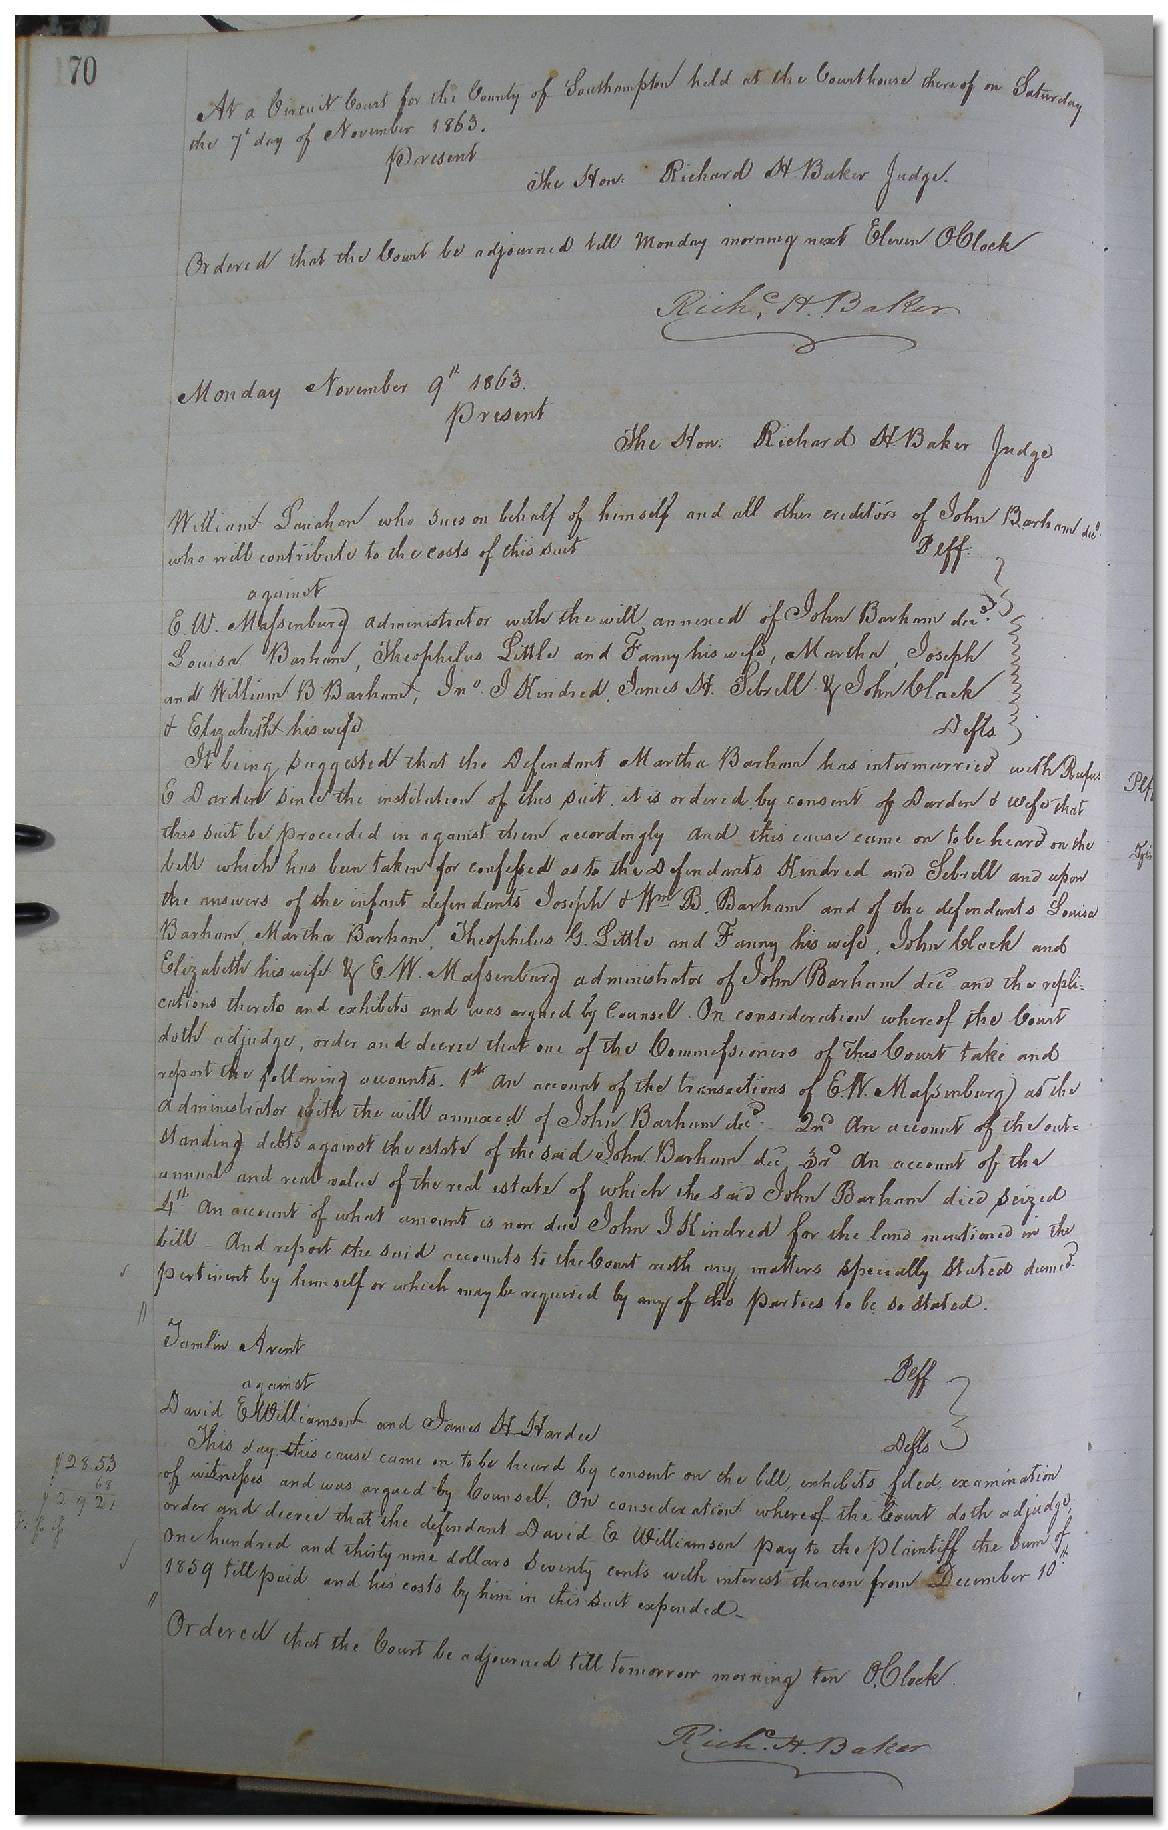 170
At a Circuit Court for the County of Southampton held at the Courthouse thereof on Saturday
the 7th day of November 1863.
Present
The Hon. Richard H Baker Judge.
Ordered that the Court be adjourned till Monday morning next Eleven OClock
Richd. H. Baker
Monday November 9th 1863.
Present
The Hon. Richard H Baker Judge
William who sues on behalf of himself and all other creditors of John Barham decd.
who will contribute to the costs of this suit Pltff.
against
E. W. Massenburg administrator with the will annexed of John Barham decd.
Louisa Barham, Theophilus Little and Fanny his wife, Martha, Joseph
and William B Barham, Jno. J Kindred, James H. Sebrell & John Clack
& Elizabeth his wife Defts
It being suggested that the Defendant Martha Barham has intermarried with Rufus
E Darden since the institution of this suit, it is ordered by consent of Darden & wife that
this suit be proceeded in against them accordingly and this cause came on to be heard on the
bill which has been taken for confessed as to the Defendants Kindred and Sebrell and upon
the answers of the infant defendants Joseph & Wm B. Barham and of the defendants Louisa
Barham, Martha Barham, Theophilus G. Little and Fanny his wife, John Clack and
Elizabeth his wife & E. W. Massenburg administrator of John Barham decd and the repli-
cations thereto and exhibits and was argued by Counsel. On consideration whereof the Court
doth adjudge, order and decree that one of the Commissioners of this Court take and
report the following accounts. 1st An account of the transactions of E. W. Massenburg as the
administrator with the will annexed of John Barham decd. 2nd An account of the out-
standing debts against the estate of the said John Barham decd 3rd An account of the
annual and real value of the real estate of which the said John Barham died seized
4th An account of what amount is now due John J Kindred for the land mentioned in the
bill - And report the said accounts to the Court with any matters specially stated deemed
pertinent by himself or which may be required by any of the parties to be so stated.
Tamlin Avent Pltff
against
David E Williamson and James H Hardee Defts
This day this cause came on to be heard by consent on the bill, exhibits filed, examination
of witnesses and was argued by Counsel. On consideration whereof the Court doth adjudge,
order and decree that the defendant David E Williamson pay to the plaintiff the sum of
One hundred and thirty nine dollars seventy cents with interest thereon from December 10th
1859 till paid and his costs by him in this suit expended.
$28.53
68
$29 21
Ordered that the Court be adjourned till tomorrow morning ten O.Clock
Richd. H. Baker